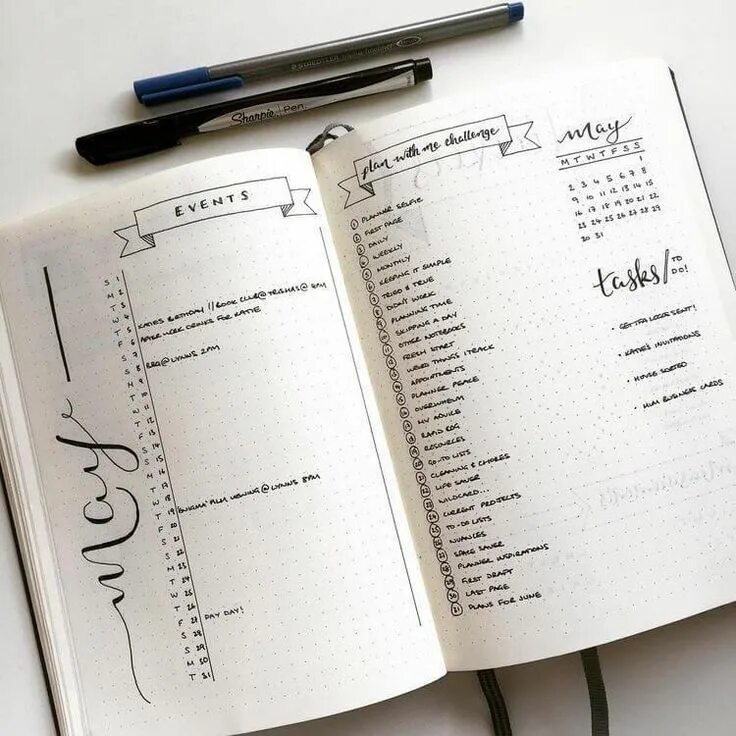 STAEDTLER
Sharpie Pen
EVENTS
May
S 1
M 2
T 3
W 4
T 5 KATIE'S BIRTHDAY // BOOK CLUB @ TRISHAS @ 8PM
F 6 AFTER WORK DRINKS FOR KATIE
S 7
S 8 BBQ @ LYNNS 2PM
M 9
T 10
W 11
T 12
F 13
S 14
S 15
M 16
T 17
W 18
T 19 'ENIGMA' FILM VIEWING @ LYNNS 8PM
F 20
S 21
S 22
M 23
T 24
W 25
T 26
F 27 PAY DAY!
S 28
S 29
M 30
T 31
plan with me challenge
1 PLANNER SELFIE
2 FIRST PAGE
3 DAILY
4 WEEKLY
5 MONTHLY
6 KEEPING IT SIMPLE
7 TRIED & TRUE
8 DIDN'T WORK
9 PLANNING TIME
10 SKIPPING A DAY
11 OTHER NOTEBOOKS
12 FRESH START
13 WEIRD THINGS I TRACK
14 APPOINTMENTS
15 PLANNER PEACE
16 OVERWHELM
17 MY ADVICE
18 RAPID LOG
19 RESOURCES
20 GO-TO LISTS
21 CLEANING & CHORES
22 LIFE SAVER
23 WILDCARD...
24 CURRENT PROJECTS
25 TO-DO LISTS
26 NUANCES
27 SPACE SAVER
28 PLANNER INSPIRATIONS
29 FIRST DRAFT
30 LAST PAGE
31 PLANS FOR JUNE
may
M T W T F S S
1
2 3 4 5 6 7 8
9 10 11 12 13 14 15
16 17 18 19 20 21 22
23 24 25 26 27 28 29
30 31
tasks/TO DO!
• GET SENT!
• KATIE'S INVITATIONS
• HOUSE SORTED
• MUM BUSINESS CARDS